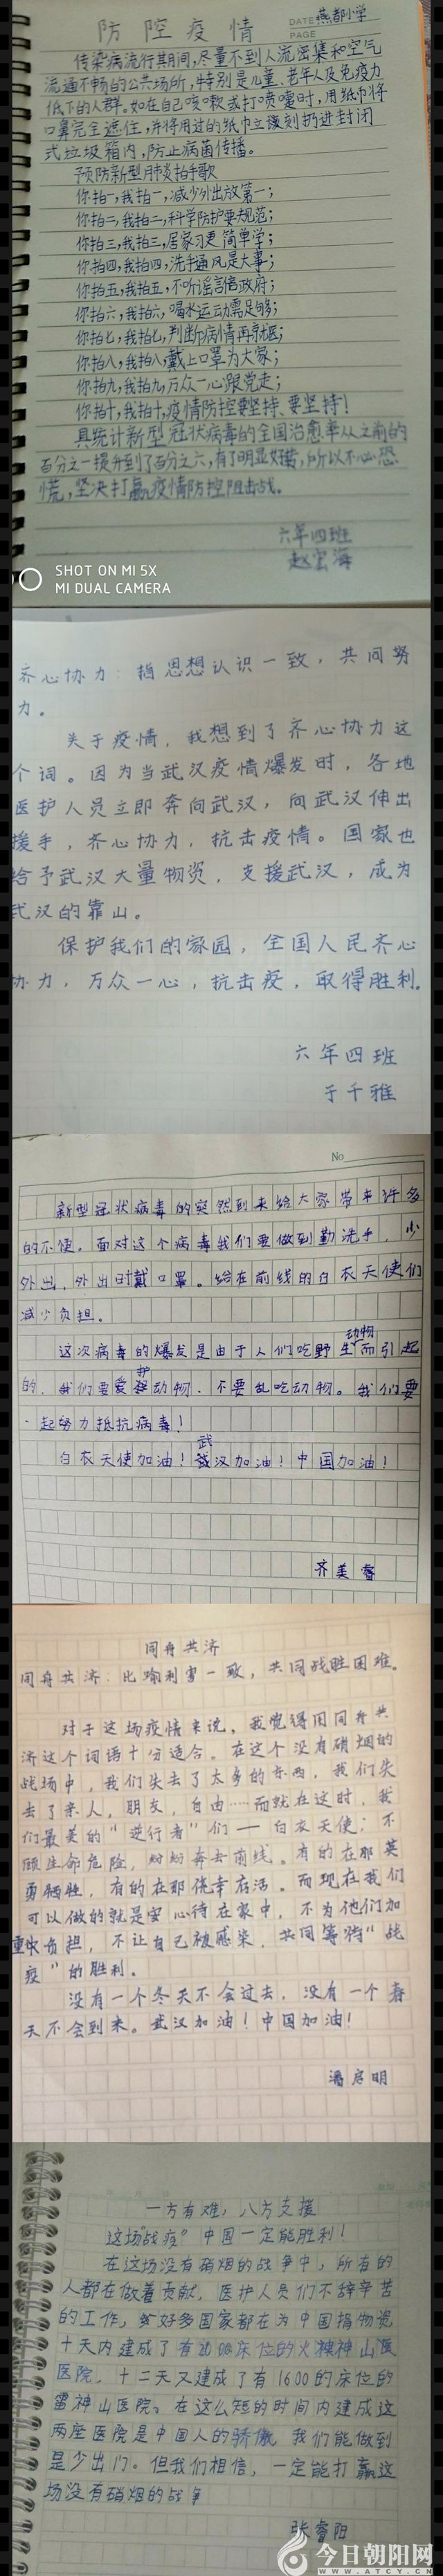 防控疫情
DATE 燕都小学
PAGE
传染病流行其期间,尽量不到人流密集和空气
流通不畅的公共场所,特别是儿童、老年人及免疫力
低下的人群。如在自己咳嗽或打喷嚏时,用纸巾将
口鼻完全遮住,并将用过的纸巾立刻扔进封闭
式垃圾箱内,防止病菌传播。
预防新型肺炎拍手歌
你拍一,我拍一,减少外出放第一;
你拍二,我拍二,科学防护要规范;
你拍三,我拍三,居家习更简单学;
你拍四,我拍四,洗手通风是大事;
你拍五,我拍五,不听谣言信政府;
你拍六,我拍六,喝水运动需足够;
你拍七,我拍七,判断病情再就医;
你拍八,我拍八,戴上口罩为大家;
你拍九,我拍九,万众一心跟党走;
你拍十,我拍十,疫情防控要坚持、要坚持!
具统计新型冠状病毒的全国治愈率从之前的
百分之一提升到了百分之六,有了明显好转,所以不必恐
慌,坚决打赢疫情防控阻击战。
六年四班
赵宏海
SHOT ON MI 5X
MI DUAL CAMERA
齐心协力:指思想认识一致,共同努
力。
关于疫情,我想到了齐心协力这
个词。因为当武汉疫情爆发时,各地
医护人员立即奔向武汉,向武汉伸出
援手,齐心协力,抗击疫情。国家也
给予武汉大量物资,支援武汉,成为
武汉的靠山。
保护我们的家园,全国人民齐心
协力,万众一心,抗击疫,取得胜利。
六年四班
于千雅
No
新型冠状病毒的突然到来给大家带来许多
的不便。面对这个病毒我们要做到勤洗手,少
外出,外出时戴口罩。给在前线的白衣天使们
减少负担。
这次病毒的爆发是由于人们吃野生动物而引起
的,我们要爱护动物,不要乱吃动物。我们要
一起努力抵抗病毒!
白衣天使加油!武汉加油!中国加油!
齐美睿
同舟共济
同舟共济:比喻利害一致,共同战胜困难。
对于这场疫情来说,我觉得用同舟共
济这个词语十分适合。在这个没有硝烟的
战场中,我们失去了太多的东西,我们失
去了亲人,朋友,自由……而就在这时,我
们最美的“逆行者”们——白衣天使;不
顾生命危险,纷纷奔去前线。有的在那英
勇牺牲,有的在那侥幸存活。而现在我们
可以做的就是安心待在家中,不为他们加
重负担,不让自己被感染,共同等待“战
疫”的胜利。
没有一个冬天不会过去,没有一个春
天不会到来。武汉加油!中国加油!
潘启明
一方有难,八方支援
这场“战疫”中国一定能胜利!
在这场没有硝烟的战争中,所有的
人都在做着贡献,医护人员们不辞辛苦
的工作,好多国家都在为中国捐物资
十天内建成了有1000床位的火神山
医院,十二天又建成了有1600的床位的
雷神山医院。在这么短的时间内建成这
两座医院是中国人的骄傲,我们能做到
是少出门。但我们相信,一定能打赢这
场没有硝烟的战争
张睿阳
今日朝阳网
WWW.ATCY.CN